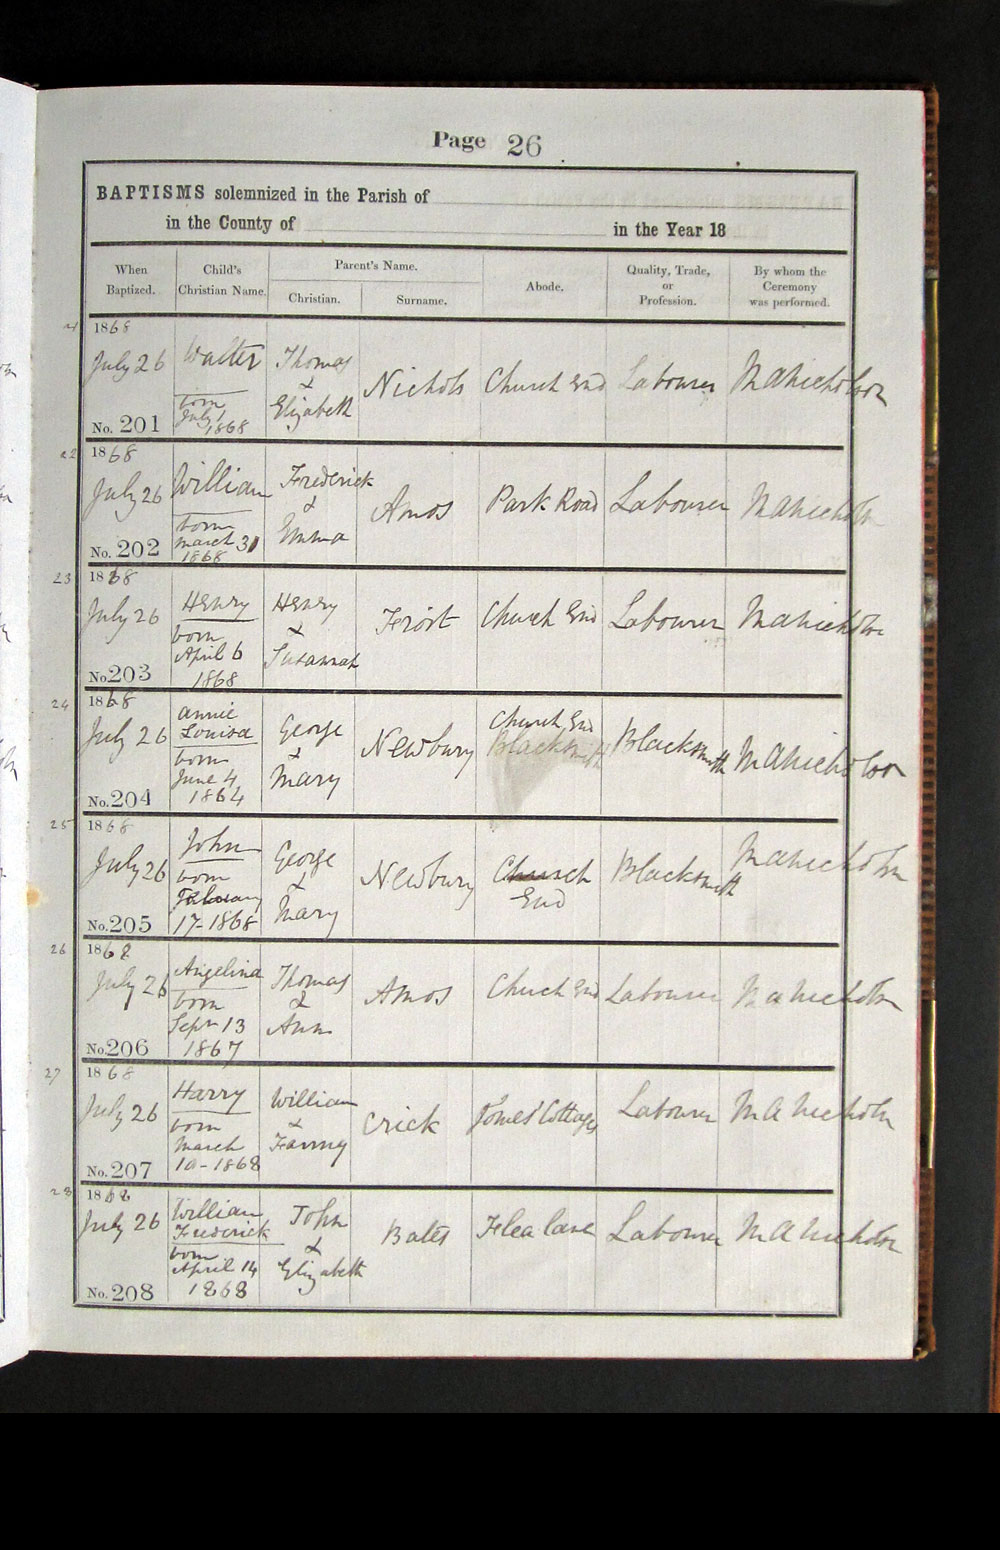 Page 26
BAPTISMS solemnized in the Parish of
in the County of in the Year 18
When Baptized.
Child's Christian Name.
Parent's Name.
Christian.
Surname.
Abode.
Quality, Trade, or Profession.
By whom the Ceremony was performed.
1868
July 26
No. 201
Walter
born
July 1
1868
Thomas
&
Elizabeth
Nichols
Church End
Labourer
M A Nicholson
22
1868
July 26
No. 202
William
born
March 31
1868
Frederick
&
Emma
Amos
Park Road
Labourer
M A Nicholson
23
1868
July 26
No. 203
Henry
born
April 6
1868
Henry
&
Susannah
Frost
Church End
Labourer
M A Nicholson
24
1868
July 26
No. 204
Annie
Louisa
born
June 4
1864
George
&
Mary
Newbury
Church End
Blacksmith
Blacksmith
M A Nicholson
25
1868
July 26
No. 205
John
born
February
17-1868
George
&
Mary
Newbury
Church
End
Blacksmith
M A Nicholson
26
1868
July 26
No. 206
Angelina
born
Sepr 13
1867
Thomas
&
Ann
Amos
Church End
Labourer
M A Nicholson
27
1868
July 26
No. 207
Harry
born
March
10-1868
William
&
Fanny
Crick
Cottages
Labourer
M A Nicholson
28
1868
July 26
No. 208
William
Frederick
born
April 14
1868
John
&
Elizabeth
Bates
Flea lane
Labourer
M A Nicholson